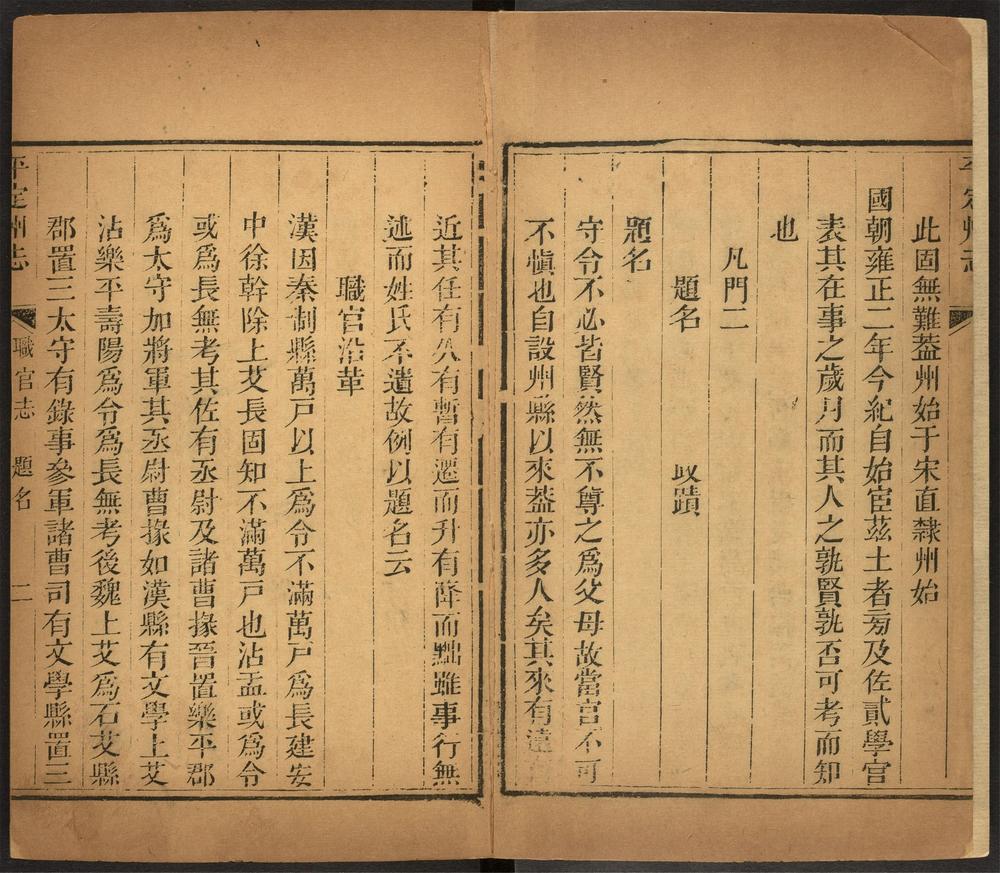 此固無難葢州始于宋直隸州始
國朝雍正二年今紀自始宦茲土者旁及佐貳學官
表其在事之歲月而其人之孰賢孰否可考而知
也
凡門二
題名 政蹟
題名
守令不必皆賢然無不尊之爲父母故當官不可
不愼也自設州縣以來葢亦多人矣其來有遠
平定州志 職官志 題名 二
近其任有久有暫有遷而升有降而黜雖事行無
述而姓氏不遺故例以題名云
職官沿革
漢因秦制縣萬戸以上爲令不滿萬戸爲長建安
中徐幹除上艾長固知不滿萬戸也沾盂或爲令
或爲長無考其佐有丞尉及諸曹掾晉置樂平郡
爲太守加將軍其丞尉曹掾如漢縣有文學上艾
沾樂平壽陽爲令爲長無考後魏上艾爲石艾縣
郡置三太守有錄事參軍諸曹司有文學縣置三